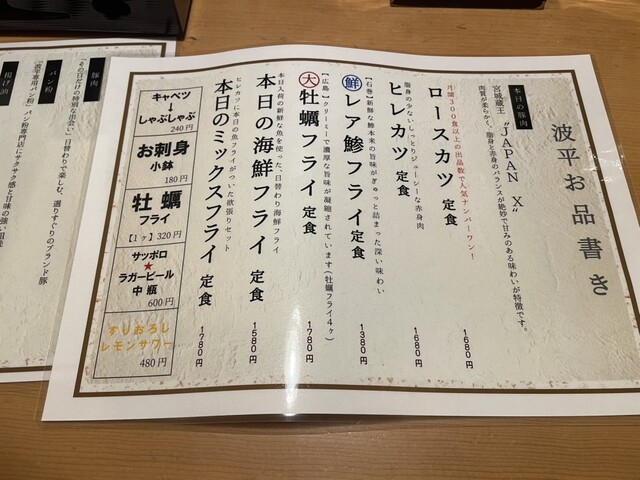 波平お品書き
本日の豚肉
宮城蔵王 “JAPAN X”
肉質が柔らかく、脂身と赤身のバランスが絶妙で甘みのある味わいが特徴です。
月間300食以上の出品数で人気ナンバーワン!
ロースカツ 定食
1680円
脂身の少ないしっとりジューシーな赤身肉
ヒレカツ 定食
1680円
【石巻】新鮮な鯵本来の旨味がぎゅっと詰まった深い味わい
鮮 レア鯵フライ 定食
1380円
【広島】クリーミーで濃厚な旨味が凝縮されています(牡蠣フライ4ヶ)
大 牡蠣フライ 定食
1780円
本日入荷の新鮮な魚を使った、日替わり海鮮フライ
本日の海鮮フライ 定食
1580円
ヒレカツに本日の魚フライがついた欲張りセット
本日のミックスフライ 定食
1780円
キャベツ
↓
しゃぶしゃぶ
240円
お刺身
小鉢
180円
牡蠣
フライ
【1ヶ】320円
サッポロ
★
ラガービール
中瓶
600円
すりおろし
レモンサワー
480円
豚肉
「その日だけの特別な出会い」日替わりで楽しむ、選りすぐりのブランド豚
パン粉
「波平専用パン粉」パン粉専門店にサクサク感と甘味の強い粗挽
揚げ油